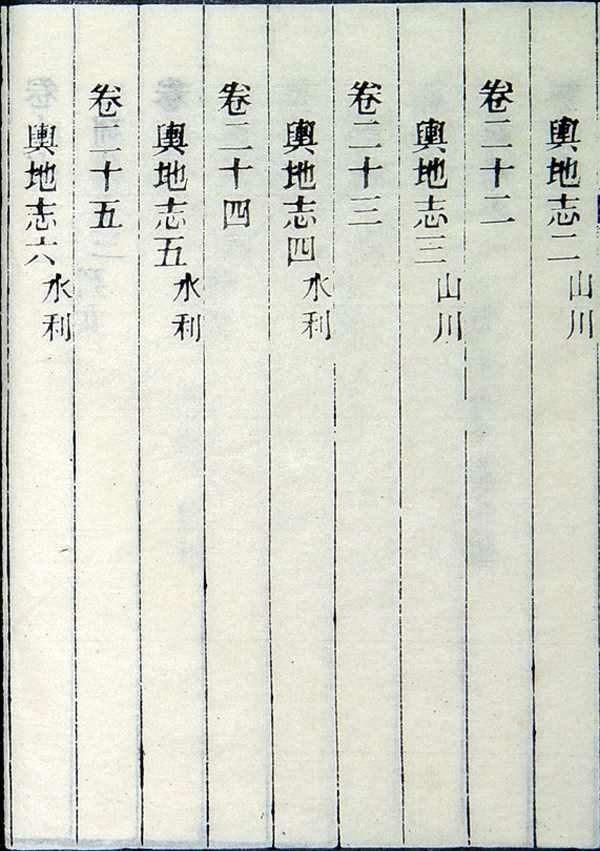 輿地志二 山川
卷二十二
輿地志三 山川
卷二十三
輿地志四 水利
卷二十四
輿地志五 水利
卷二十五
輿地志六 水利